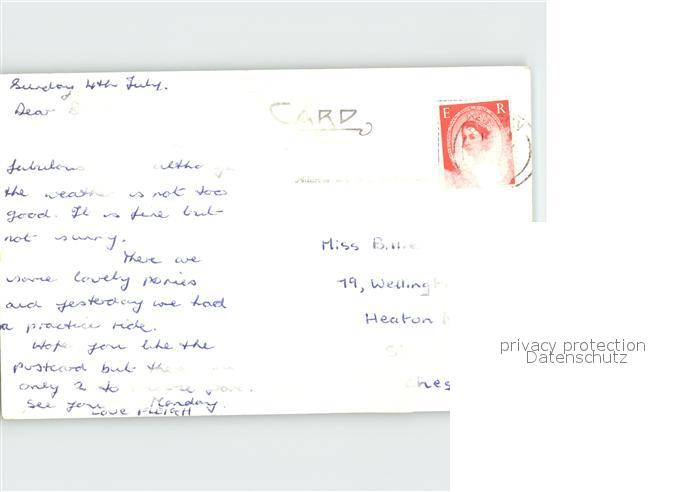 Sunday 4th July.
Dear B
CARD
E R
fabulous althoug
the weather is not too
good. It is fine but
not sunny.
There are
some lovely ponies
and yesterday we had
a practice ride.
Hope you like the
postcard but the
only 2 to
See you Monday.
Love
Miss Billie
79, Wellingt
Heaton
Ches
privacy protection
Datenschutz